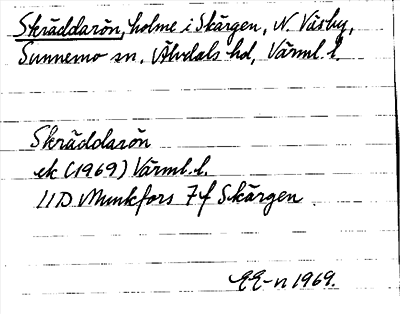 Skräddarön, holme i Skärgen, N. Väsby,
Sunnemo sn, Älvdals hd, Värml. l.
Skräddarön
ek (1969) Värml. l.
11D Munkfors 7f Skärgen
EE-n 1969.